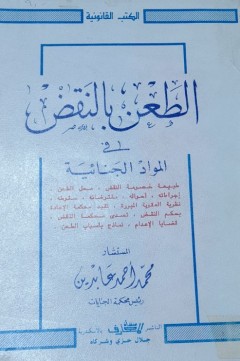 الكتب القانونية
الطعن بالنقض
في
المواد الجنائية
طبيعة خصومة النقض ، محل الطعن
إجراءاته ، أحواله ، مشتملاته ، سقوطه ،
نظرية العقوبة المبررة ، تقيد محكمة الإعادة
بحكم النقض ، تصدى محكمة النقض
قضايا الإعدام ، نماذج بأسباب الطعن
المستشار
محمد أحمد عابدين
رئيس محكمة الجنايات
الناشر
المعارف بالإسكندرية
جلال حزي وشركاه